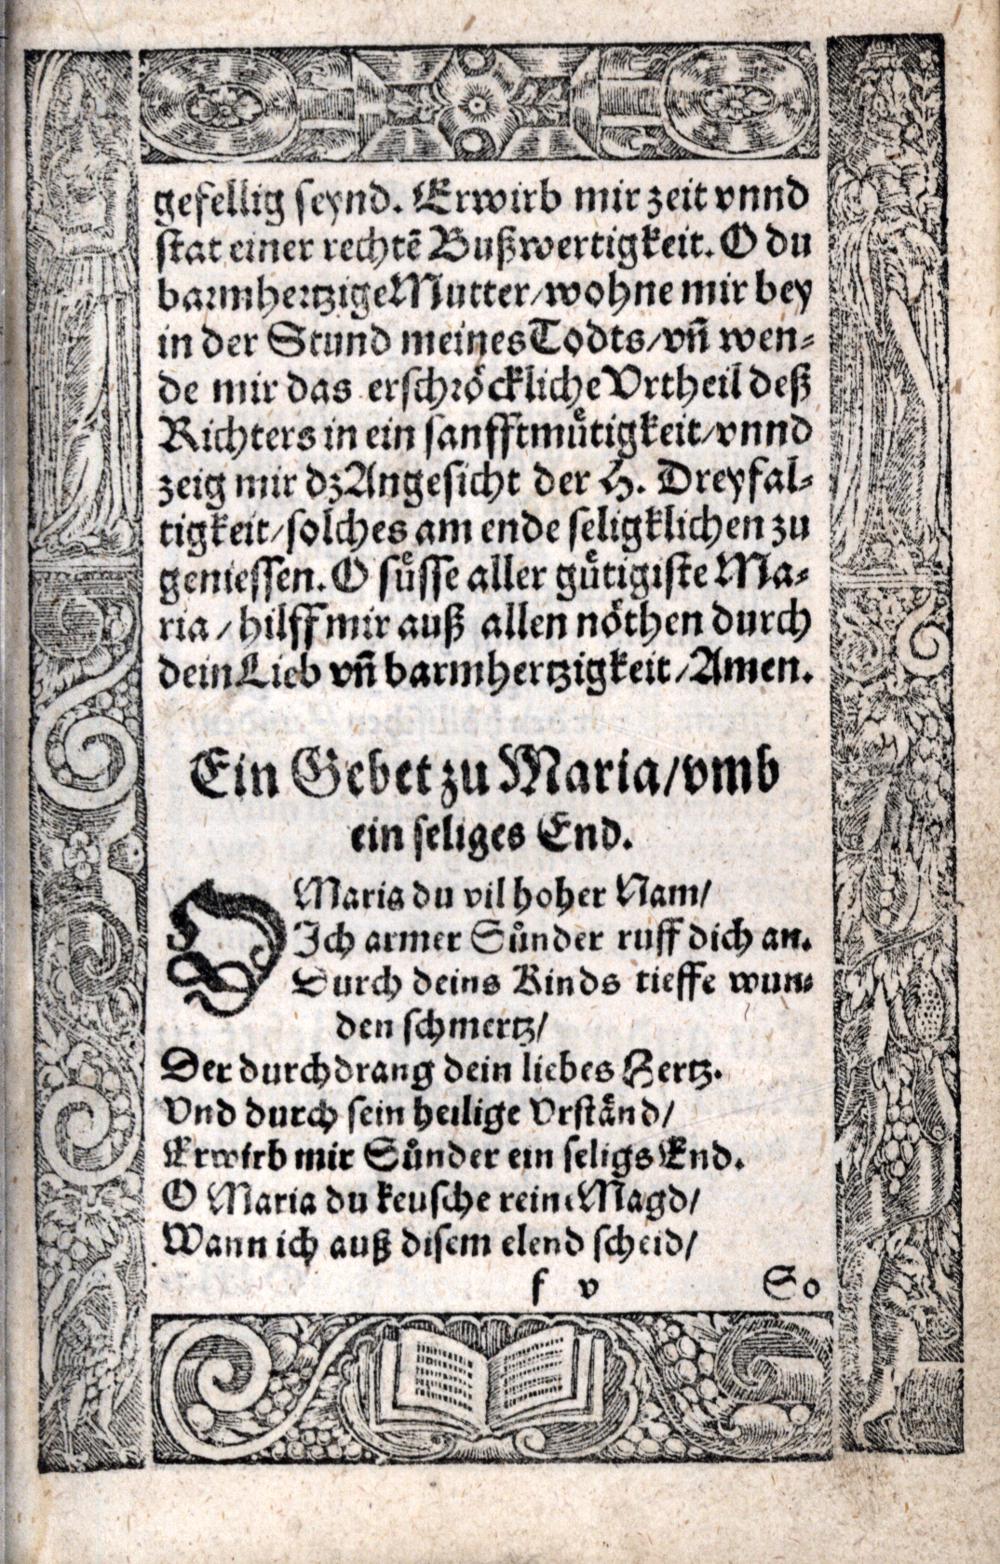 gefellig seynd. Erwirb mir zeit vnnd
stat einer rechtē Bußwertigkeit. O du
barmhertzige Mutter/wohne mir bey
in der Stund meines Todts/vn̄ wen⸗
de mir das erschröckliche Vrtheil deß
Richters in ein sanfftmuͤtigkeit/vnnd
zeig mir dz Angesicht der H. Dreyfal⸗
tigkeit/solches am ende seligklichen zu
geniessen. O suͤsse aller guͤtigiste Ma⸗
ria/hilff mir auß allen noͤthen durch
dein Lieb vn̄ barmhertzigkeit/Amen.
Ein Gebet zu Maria/vmb
ein seliges End.
O Maria du vil hoher Nam/
Ich armer Suͤnder ruff dich an.
Durch deins Kinds tieffe wun⸗
den schmertz/
Der durchdrang dein liebes Hertz.
Vnd durch sein heilige Vrstaͤnd/
Erwirb mir Suͤnder ein seligs End.
O Maria du keusche reine Magd/
Wann ich auß disem elend scheid/
f v So